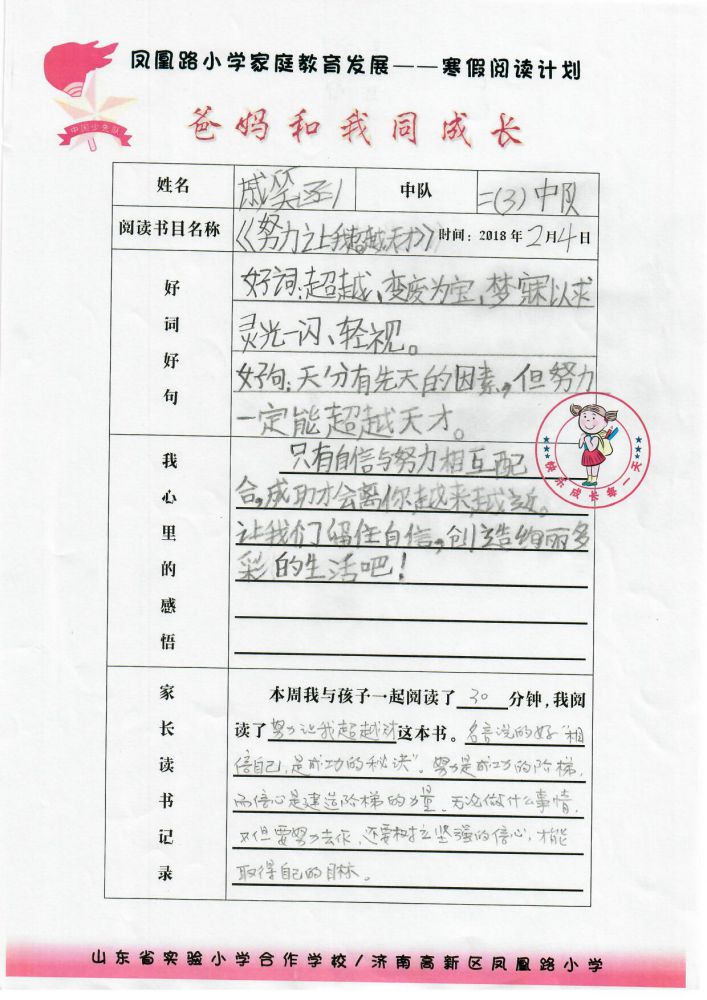 凤凰路小学家庭教育发展——寒假阅读计划
中国少先队
爸妈和我同成长
姓名 戚笑涵 中队 二(3)中队
阅读书目名称 《努力让我超越天才》 时间：2018年2月4日
好词好句
好词:超越、变废为宝、梦寐以求
灵光一闪、轻视。
好句:天分有先天的因素,但努力
一定能超越天才。
快乐成长每一天
我心里的感悟
只有自信与努力相互配
合,成功才会离你越来越近。
让我们留住自信,创造绚丽多
彩的生活吧!
家长读书记录
本周我与孩子一起阅读了30分钟,我阅
读了努力让我超越天才这本书。名言说的好"相
信自己,是成功的秘诀"。努力是成功的阶梯,
而信心是建造阶梯的力量。无论做什么事情,
不但要努力去作,还要树立坚强的信心,才能
取得自己的目标。
山东省实验小学合作学校/济南高新区凤凰路小学